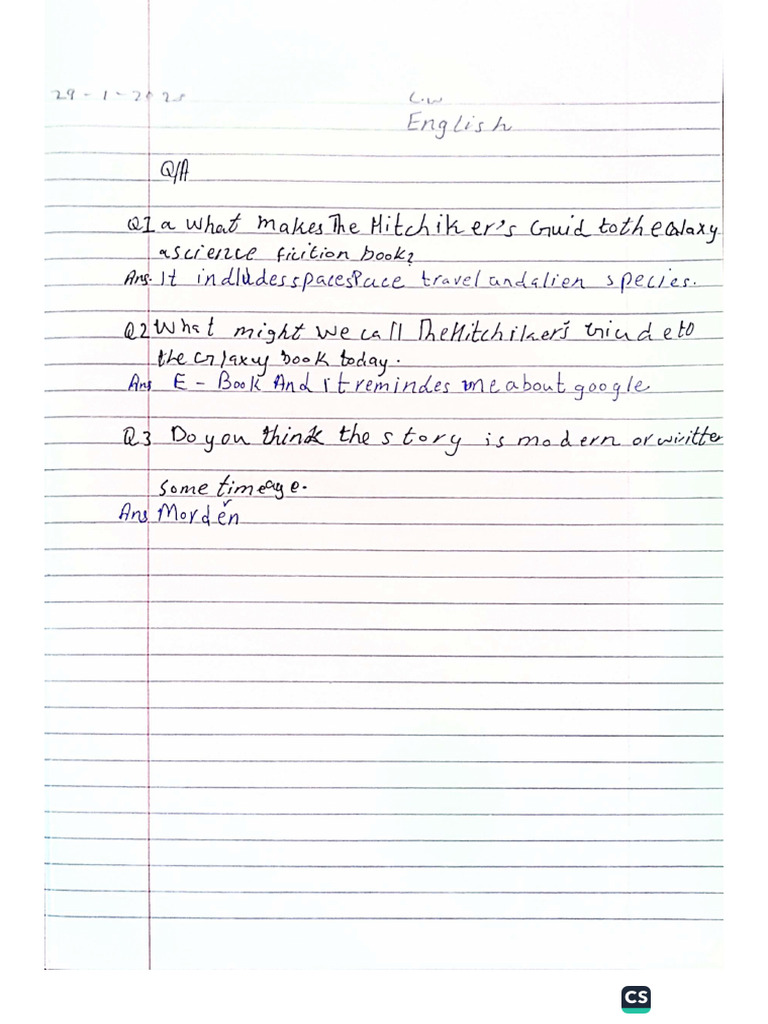 29-1-2025
C.W
English
Q/A
Q1 a What makes The Hitchiker's Guid to the Galaxy
a science ficition book?
Ans. It indludes space space travel and alien species.
Q2 What might we call The Hitchiker's Griude to
the Galaxy book today.
Ans E-Book And it remindes me about google
Q3 Do you think the story is modern or writter
some time age.
Ans Morden
CS